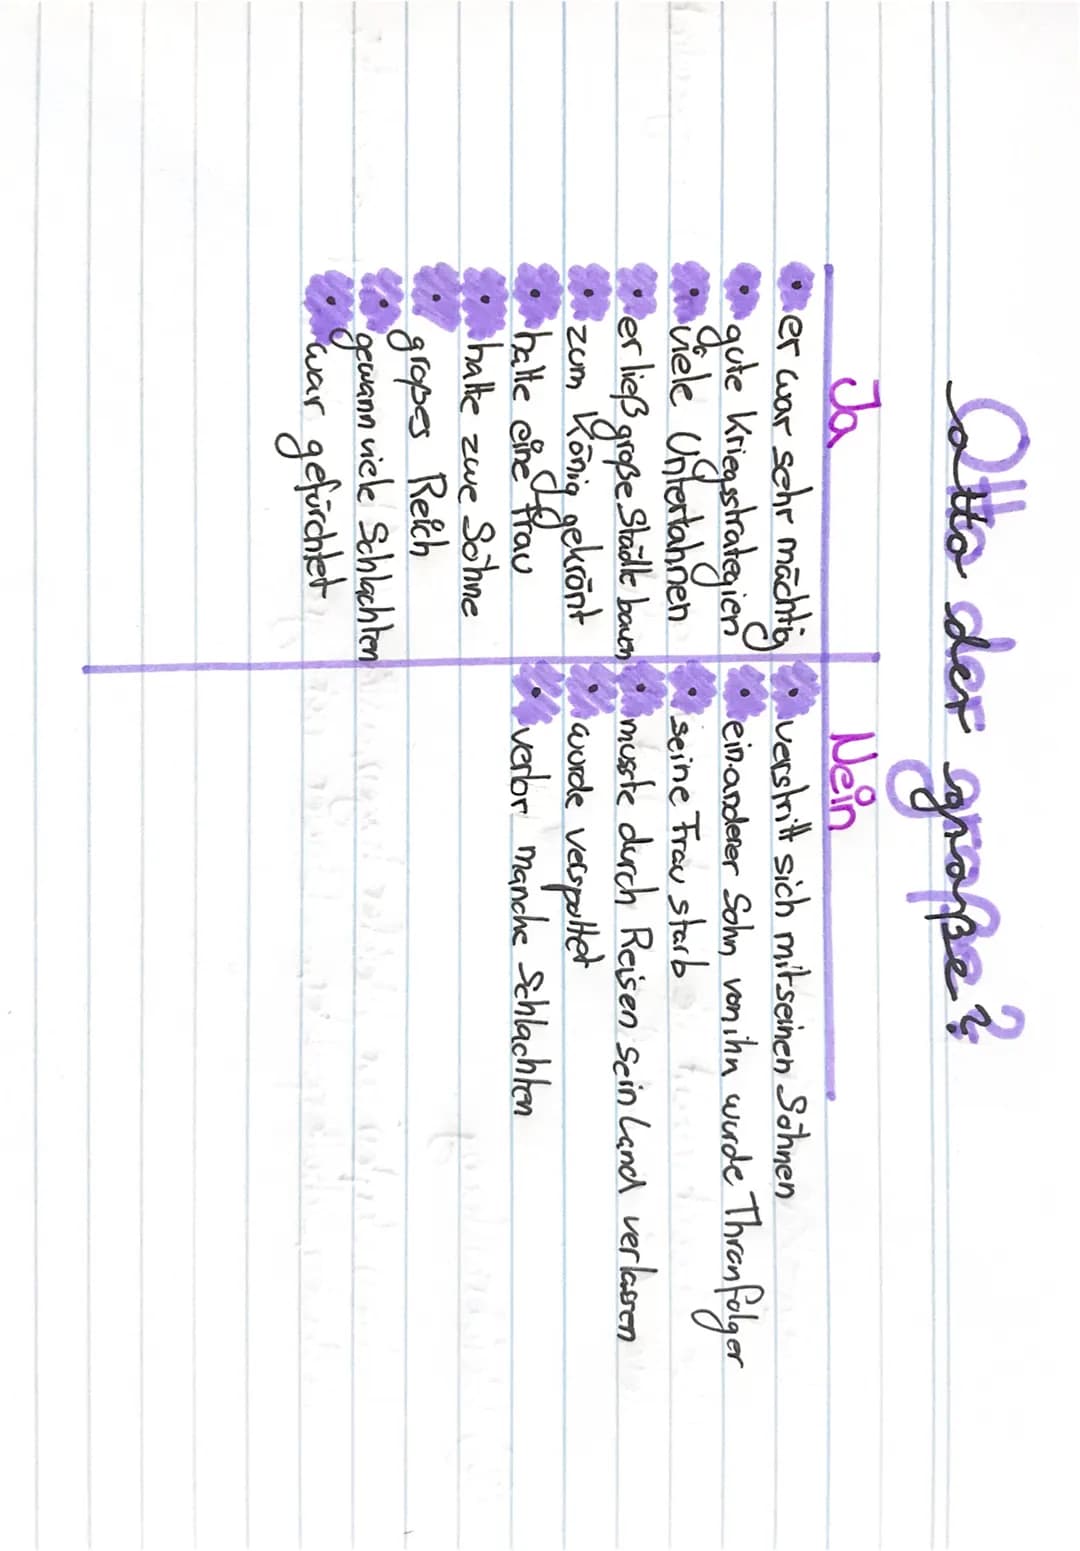 Otto der große?
Ja
Nein
• er war sehr mächtig
• gute Kriegsstrategien
• viele Untertahnen
• er ließ große Städte bauen
• zum König gekrönt
• hatte eine Frau
• hatte zwe Söhne
• großes Reich
• gewann viele Schlachten
• war gefürchtet
• verstritt sich mit seinen Söhnen
• ein anderer Sohn von ihn wurde Thronfolger
• seine Frau starb
• musste durch Reisen sein Land verlassen
• wurde verspottet
• verlor manche Schlachten